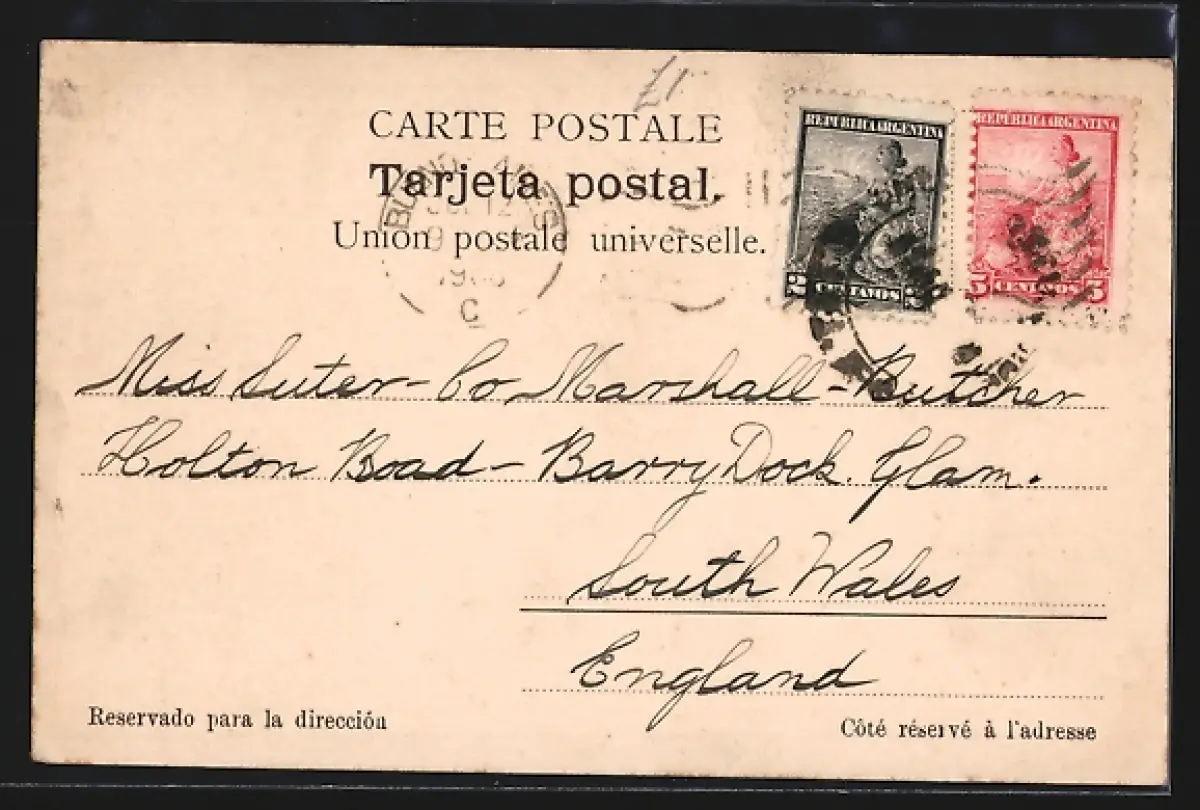 CARTE POSTALE
Tarjeta postal.
Union postale universelle.
REPUBLICA ARGENTINA
2 CENTAVOS 2
REPUBLICA ARGENTINA
5 CENTAVOS 5
BUENOS AIRES
C
Miss Suter - Co Marshall - Butcher
Holton Road - Barry Dock. Glam.
South Wales
England
Reservado para la dirección
Côté réservé à l'adresse